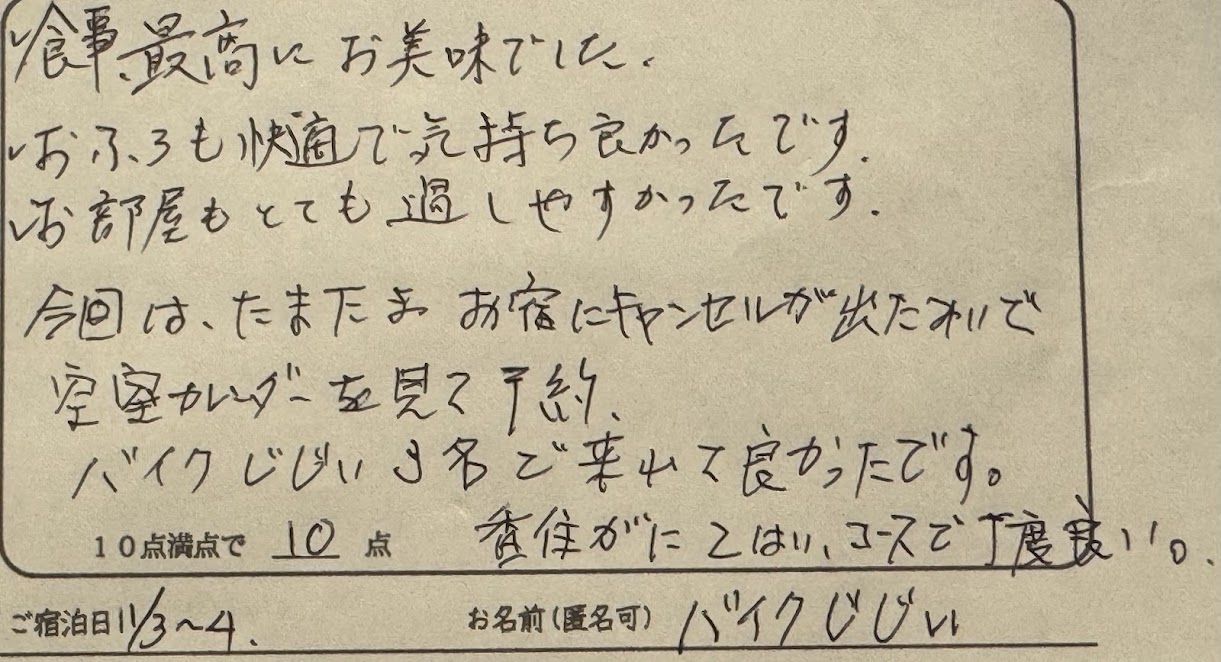 ✓食事、最高にお美味でした.
✓おふろも快適で気持ち良かったです.
✓お部屋もとても過しやすかったです.
今回は、たまたまお宿にキャンセルが出たみいで
空室カレンダーを見て予約.
バイクじじい3名で来れて良かったです。
10点満点で 10 点 香住がに2はい、コースで丁度良い。
ご宿泊日 11/3~4. お名前(匿名可) バイクじじい